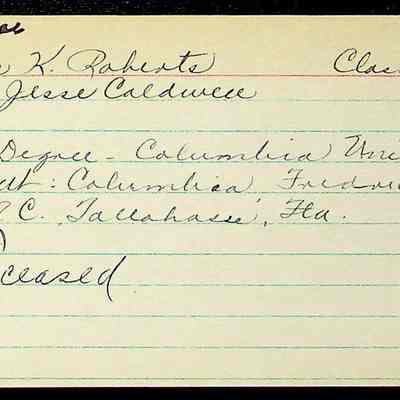 K. Roberts Clas
Jesse Caldwell
Degree - Columbia Uni
: Columbia, Fredri
C., Tallahassee, Fla.
)
ceased